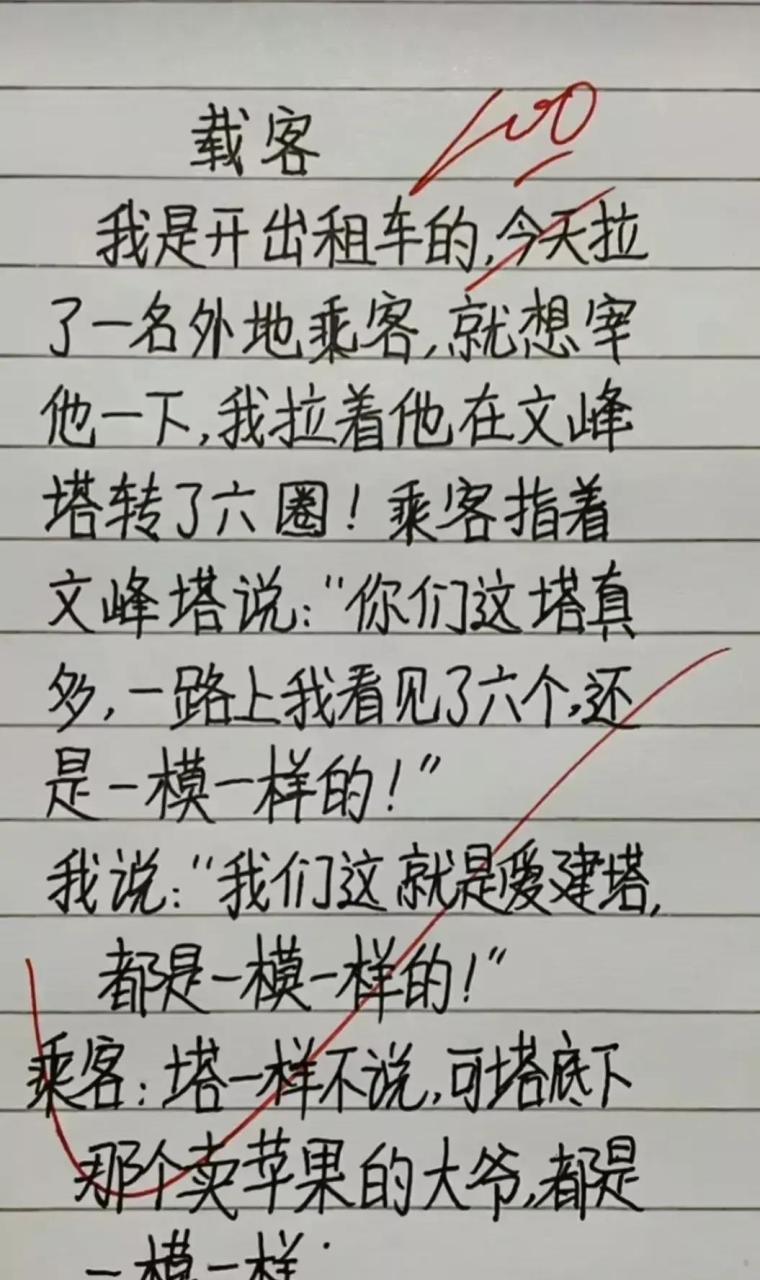 载客
100
我是开出租车的,今天拉
了一名外地乘客,就想宰
他一下,我拉着他在文峰
塔转了六圈!乘客指着
文峰塔说:"你们这塔真
多,一路上我看见了六个,还
是一模一样的!"
我说:"我们这就是爱建塔,
都是一模一样的!"
乘客:塔一样不说,可塔底下
那个卖苹果的大爷,都是
一模一样